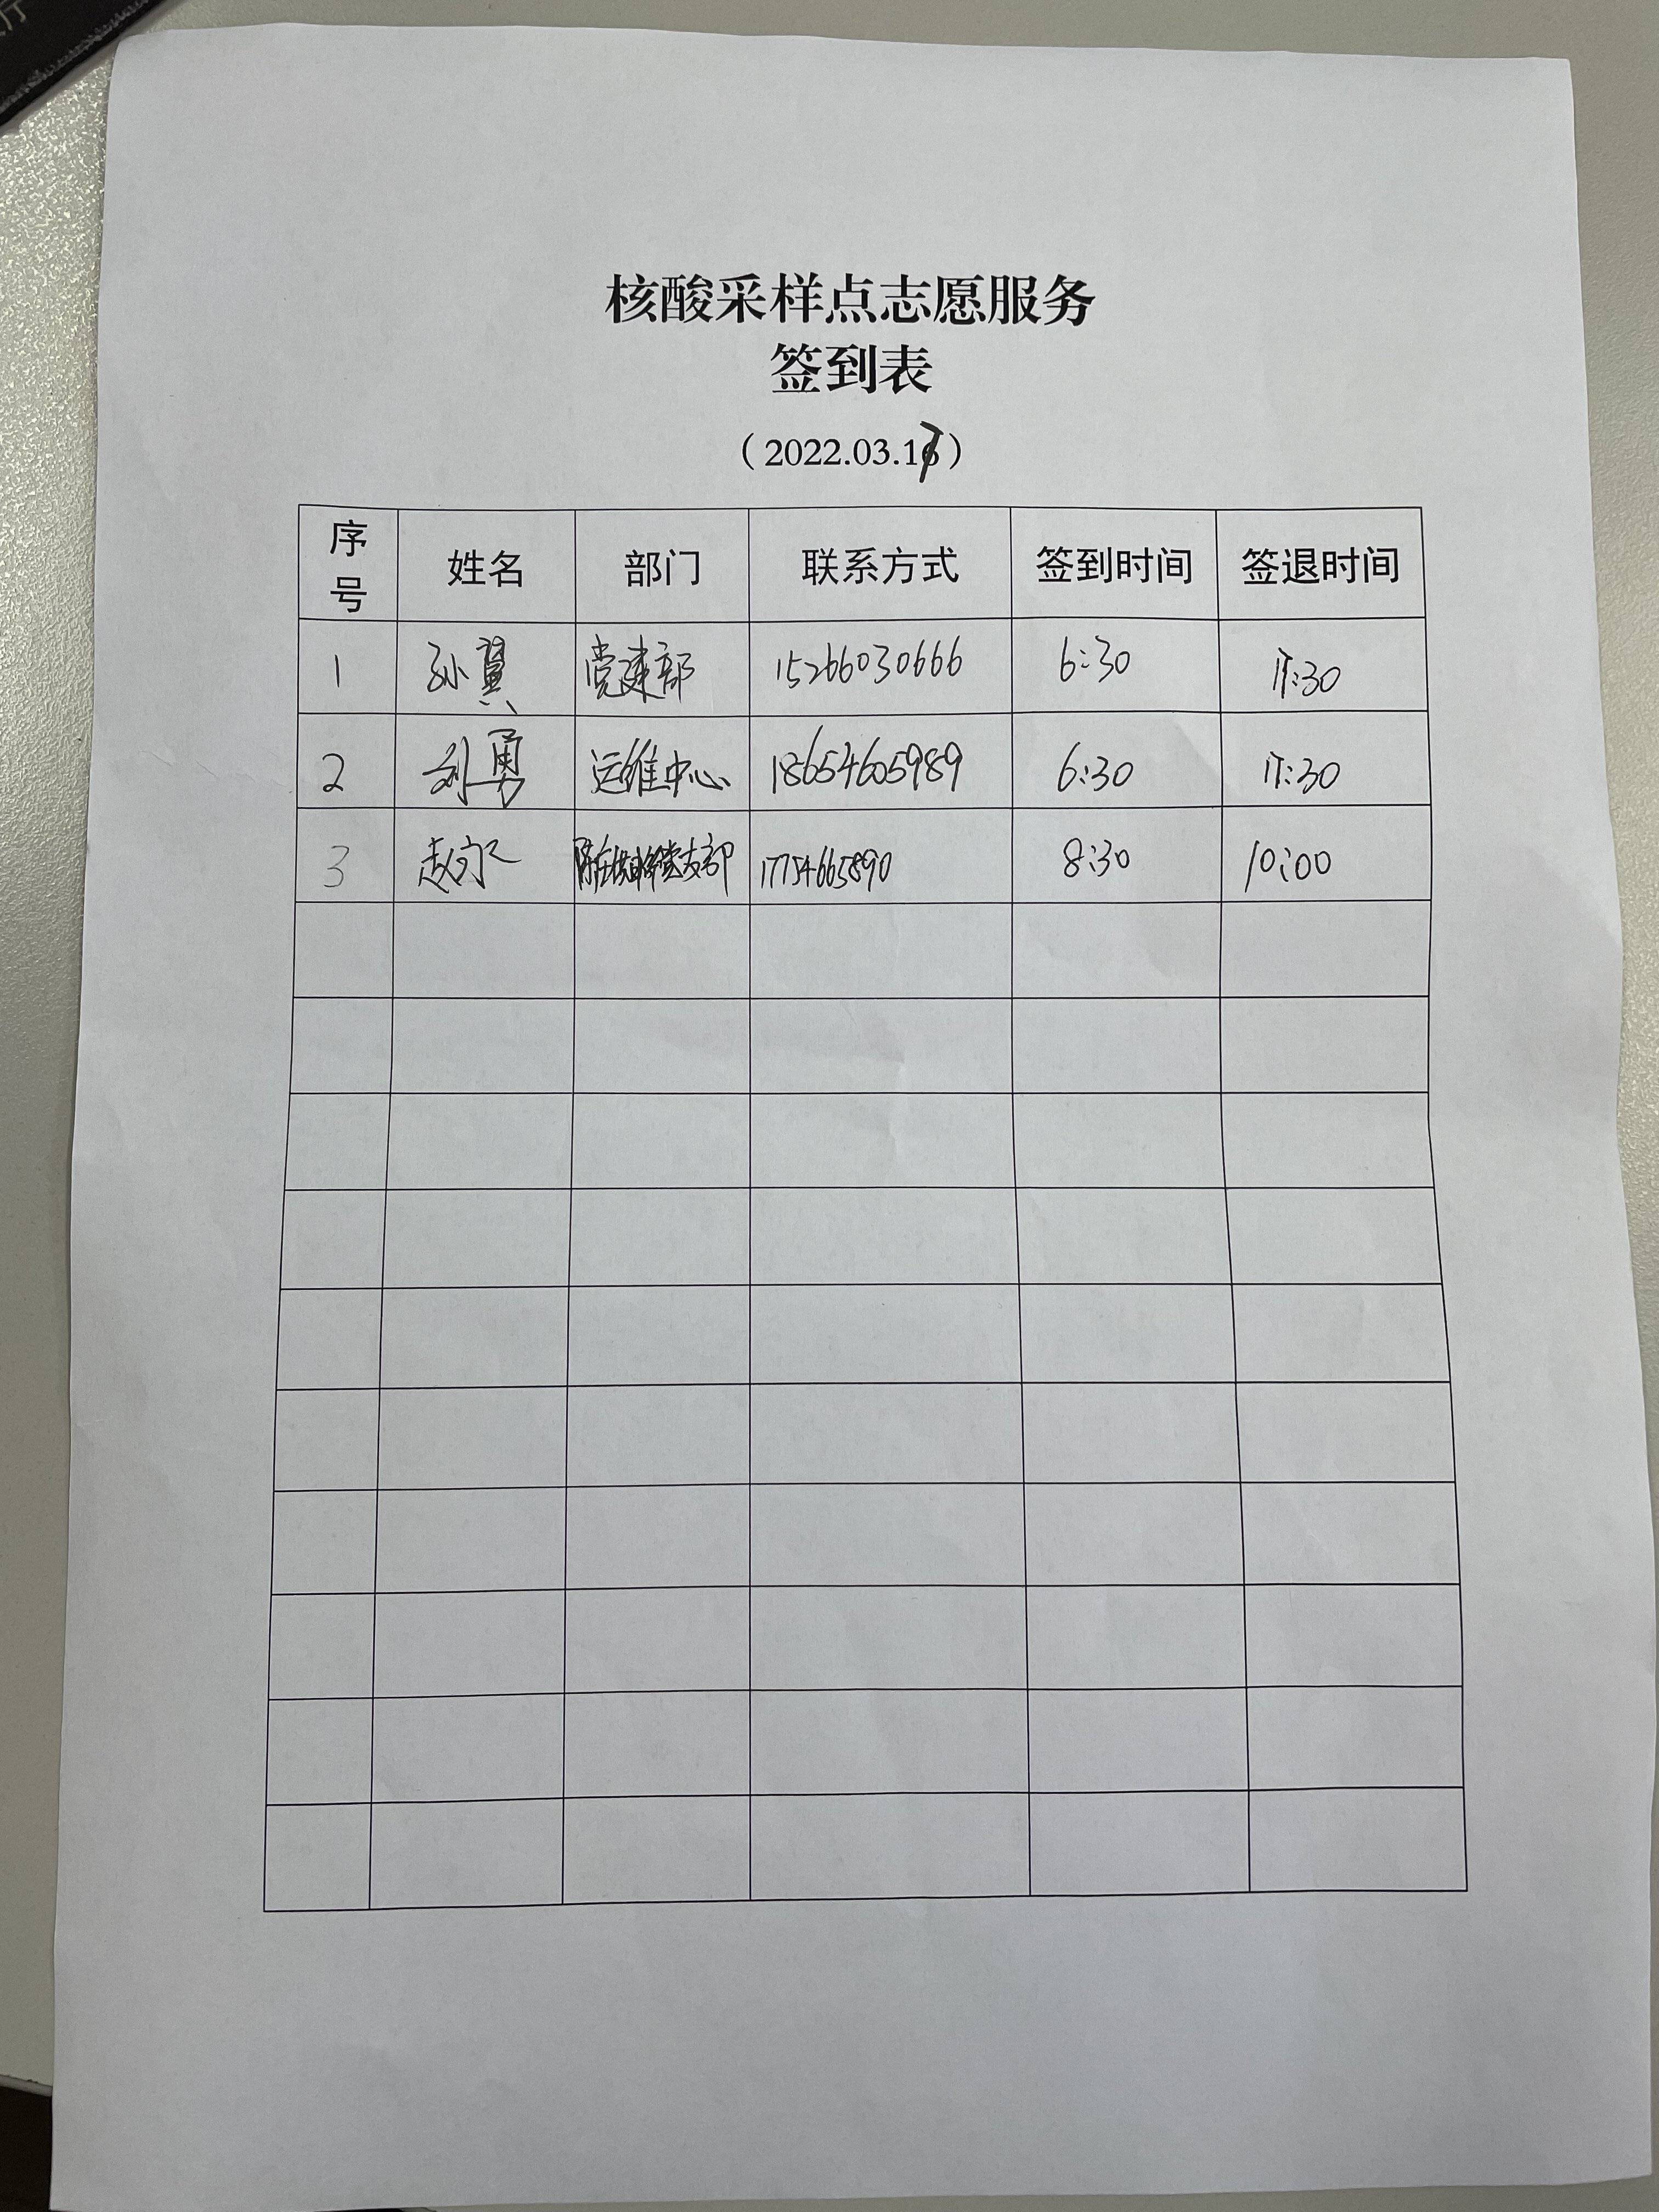 核酸采样点志愿服务
签到表
（2022.03.17）
序号 姓名 部门 联系方式 签到时间 签退时间
1 孙翼 党建部 15266030666 6:30 17:30
2 刘勇 运维中心 18654605989 6:30 17:30
3 赵 党支部 17754665890 8:30 10:00